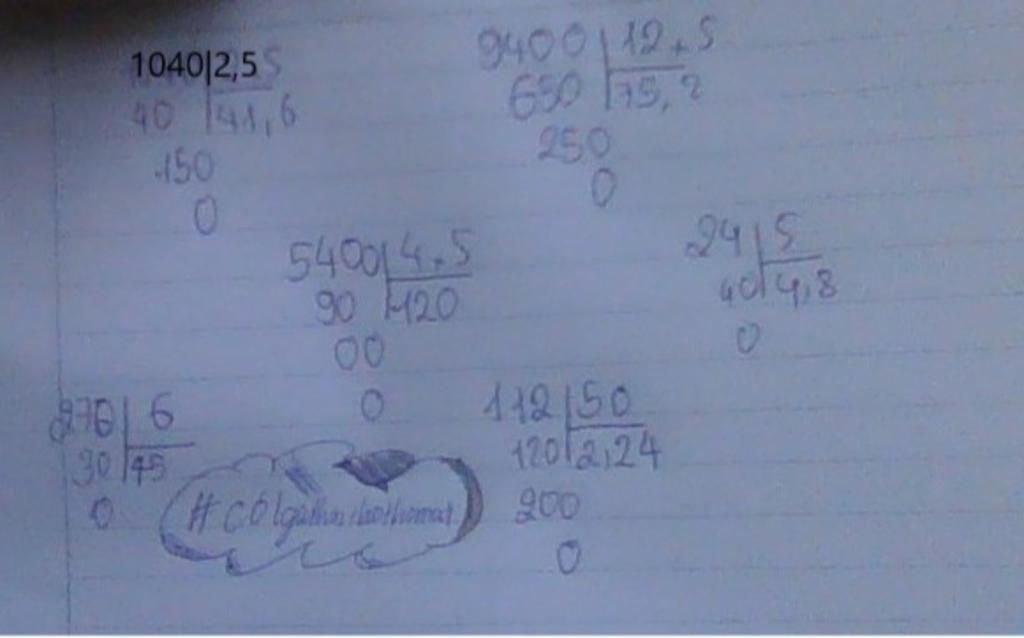 1040 2,5
40 41,6
150
0
9400 12,5
650 75,2
250
0
5400 4,5
90 120
00
0
24 5
40 4,8
0
270 6
30 45
0
112 50
120 2,24
200
0